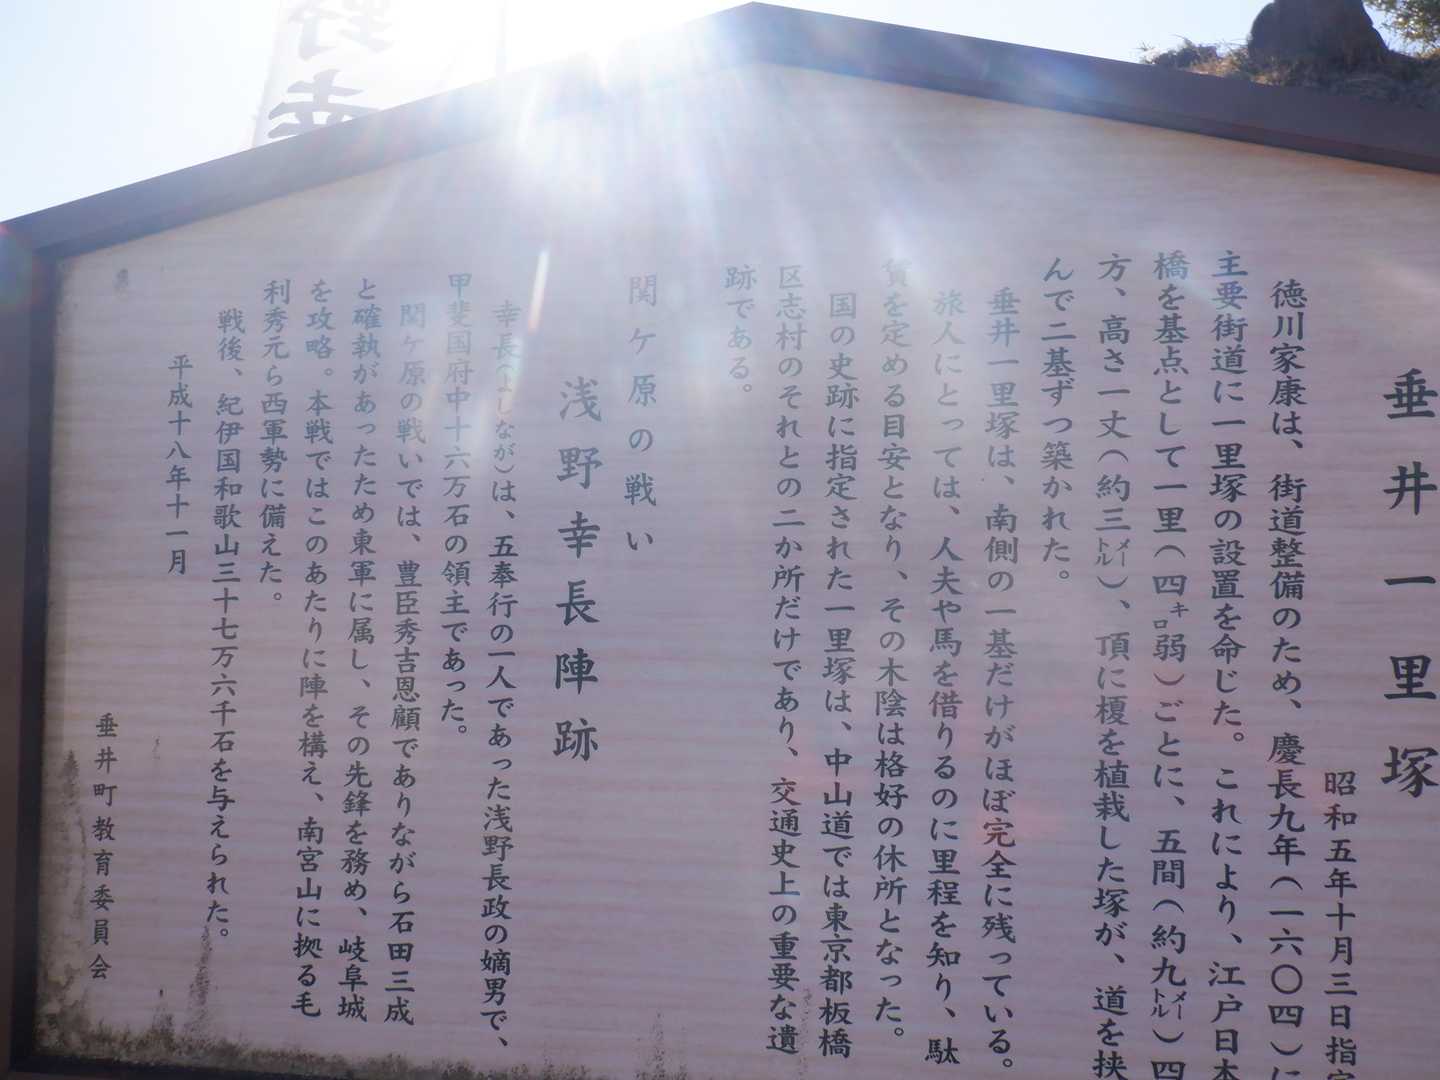 野幸
垂井一里塚
昭和五年十月三日指定
徳川家康は、街道整備のため、慶長九年(一六〇四)に
主要街道に一里塚の設置を命じた。これにより、江戸日本
橋を基点として一里(四キロ弱)ごとに、五間(約九メートル)四
方、高さ一丈(約三メートル)、頂に榎を植栽した塚が、道を挟
んで二基ずつ築かれた。
垂井一里塚は、南側の一基だけがほぼ完全に残っている。
旅人にとっては、人夫や馬を借りるのに里程を知り、駄
賃を定める目安となり、その木陰は格好の休所となった。
国の史跡に指定された一里塚は、中山道では東京都板橋
区志村のそれとの二か所だけであり、交通史上の重要な遺
跡である。
関ケ原の戦い
浅野幸長陣跡
幸長(よしなが)は、五奉行の一人であった浅野長政の嫡男で、
甲斐国府中十六万石の領主であった。
関ケ原の戦いでは、豊臣秀吉恩顧でありながら石田三成
と確執があったため東軍に属し、その先鋒を務め、岐阜城
を攻略。本戦ではこのあたりに陣を構え、南宮山に拠る毛
利秀元ら西軍勢に備えた。
戦後、紀伊国和歌山三十七万六千石を与えられた。
平成十八年十一月
垂井町教育委員会